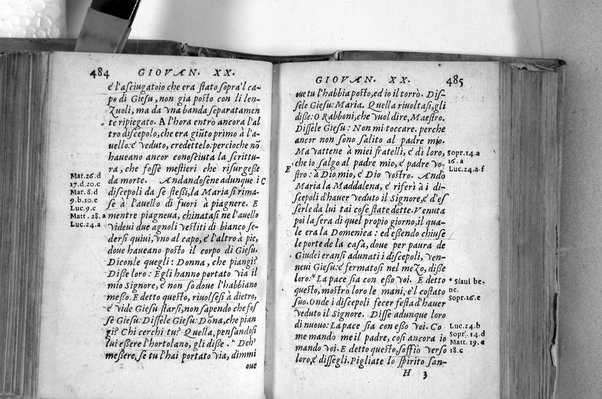 484 GIOVAN. XX.
e l'asciugatoio che era stato sopra'l ca-
po di Giesu, non gia posto con li len-
zuoli, ma da vna banda separatamen-
te ripiegato. A l'hora entrò ancora l'al
tro discepolo, che era giūto primo à l'a-
uello: e veduto, credettelo. percioche nō
haueano ancor conosciuta la scrittu-
ra, che fosse mestieri che risurgesse
Mat. 26.d
da morte. Andandosene adunque i
17.d.20.c
discepoli da se stessi, la Maria si rima-
Mar. 8.d
se à l'auello di fuori à piagnere. E
9.b.10.c
mentre piagneua, chinatasi ne l'auello
Luc. 9.c
videui due agnoli vestiti di bianco se-
Matt. 28.a
dersi quiui, vno al capo, e l'altro à pie,
Luc. 24.a
doue haueano posto il corpo di Giesu.
Diconle quegli: Donna, che piangi?
Disse loro: Egli hanno portato via il
mio Signore, e non so doue l'habbiano
messo. E detto questo, riuolsesi à dietro,
e vide Giesu starsi, non sapendo che fos
se Giesu: Dissele Giesu: Dōna, che pian
gi? Chi cerchi tu? Quella, pensandosi
lui essere l'hortolano, gli disse. Deh'
messere, se tu l'hai portato via, dimmi
oue
GIOVAN. XX. 485
oue tu l'habbia posto, ed io il torrò. Dis-
sele Giesu: Maria. Quella riuoltasi, gli
disse: O Rabboni, che vuol dire, Maestro.
Dissele Giesu: Non mi toccare. perche
ancor non sono salito al padre mio.
Ma vattene à miei fratelli, e di loro,
Sopr. 14.a
che io salgo al padre mio, e padre vo-
16.a
stro: à Dio mio, e Dio vostro. Ando
Luc. 24.a.f
E
Maria la Maddalena, e riferì à i di-
scepoli d'hauer veduto il Signore, e d'es
serle da lui tai cose state dette. Venuta
poi la sera di quel proprio giorno, il qua-
le era la Domenica: ed essendo chiuse
le porte de la casa, doue per paura de
Giudei eransi adunati i discepoli, ven-
neui Giesu: e fermatosi nel mezo, disse
loro: La pace sia con esso voi. E detto
* Siaui be,
questo, mostrò loro le mani, e'l costato
ne.
suo. Onde i discepoli fecer festa d'hauer
Sopr. 16.e
veduto il Signore. Disse adunque loro
di nuouo: La pace sia con esso voi. Co
Luc. 24.b
me mandò me il padre, così ancora io
Sopr. 14.d
mando voi. E detto questo, soffiò verso
Matt. 19.c
loro, e dissegli. Pigliate lo spirito san-
18.c
H 3